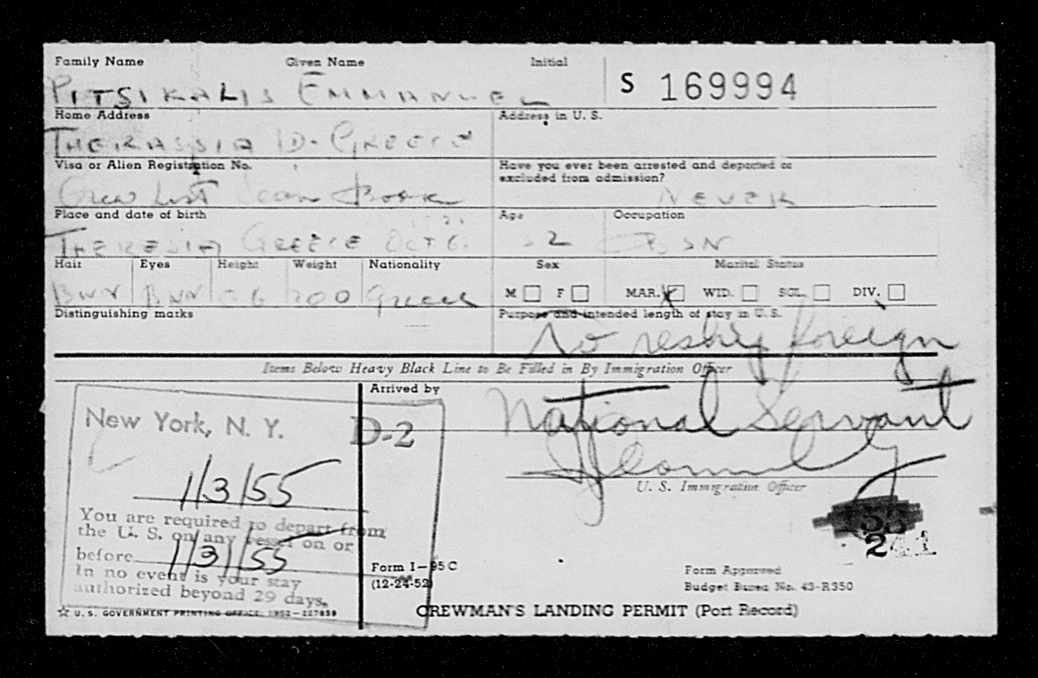 Family Name Given Name Initial
PITSIKALIS EMMANUEL S 169994
Home Address Address in U. S.
THERASSIA D. GREECE
Visa or Alien Registration No. Have you ever been arrested and deported or
excluded from admission?
Crew List Seam Book NEVER
Place and date of birth Age Occupation
THERESIA GREECE OCT 6. BSN
Hair Eyes Height Weight Nationality Sex Marital Status
BWN BNN 200 Greek M F MAR. X WID. SGL. DIV.
Distinguishing marks Purpose and intended length of stay in U.S.
To reship foreign
Items Below Heavy Black Line to Be Filled in By Immigration Officer
Arrived by
New York, N. Y. D-2 National Servant
1/3/55
U. S. Immigration Officer
You are required to depart from
the U. S. on any vessel on or
before 1/31/55
In no event is your stay
authorized beyond 29 days.
Form I-95 C
(12-24-52)
Form Approved
Budget Bureau No. 43-R350
☆ U. S. GOVERNMENT PRINTING OFFICE: 1952 CREWMAN'S LANDING PERMIT (Port Record)